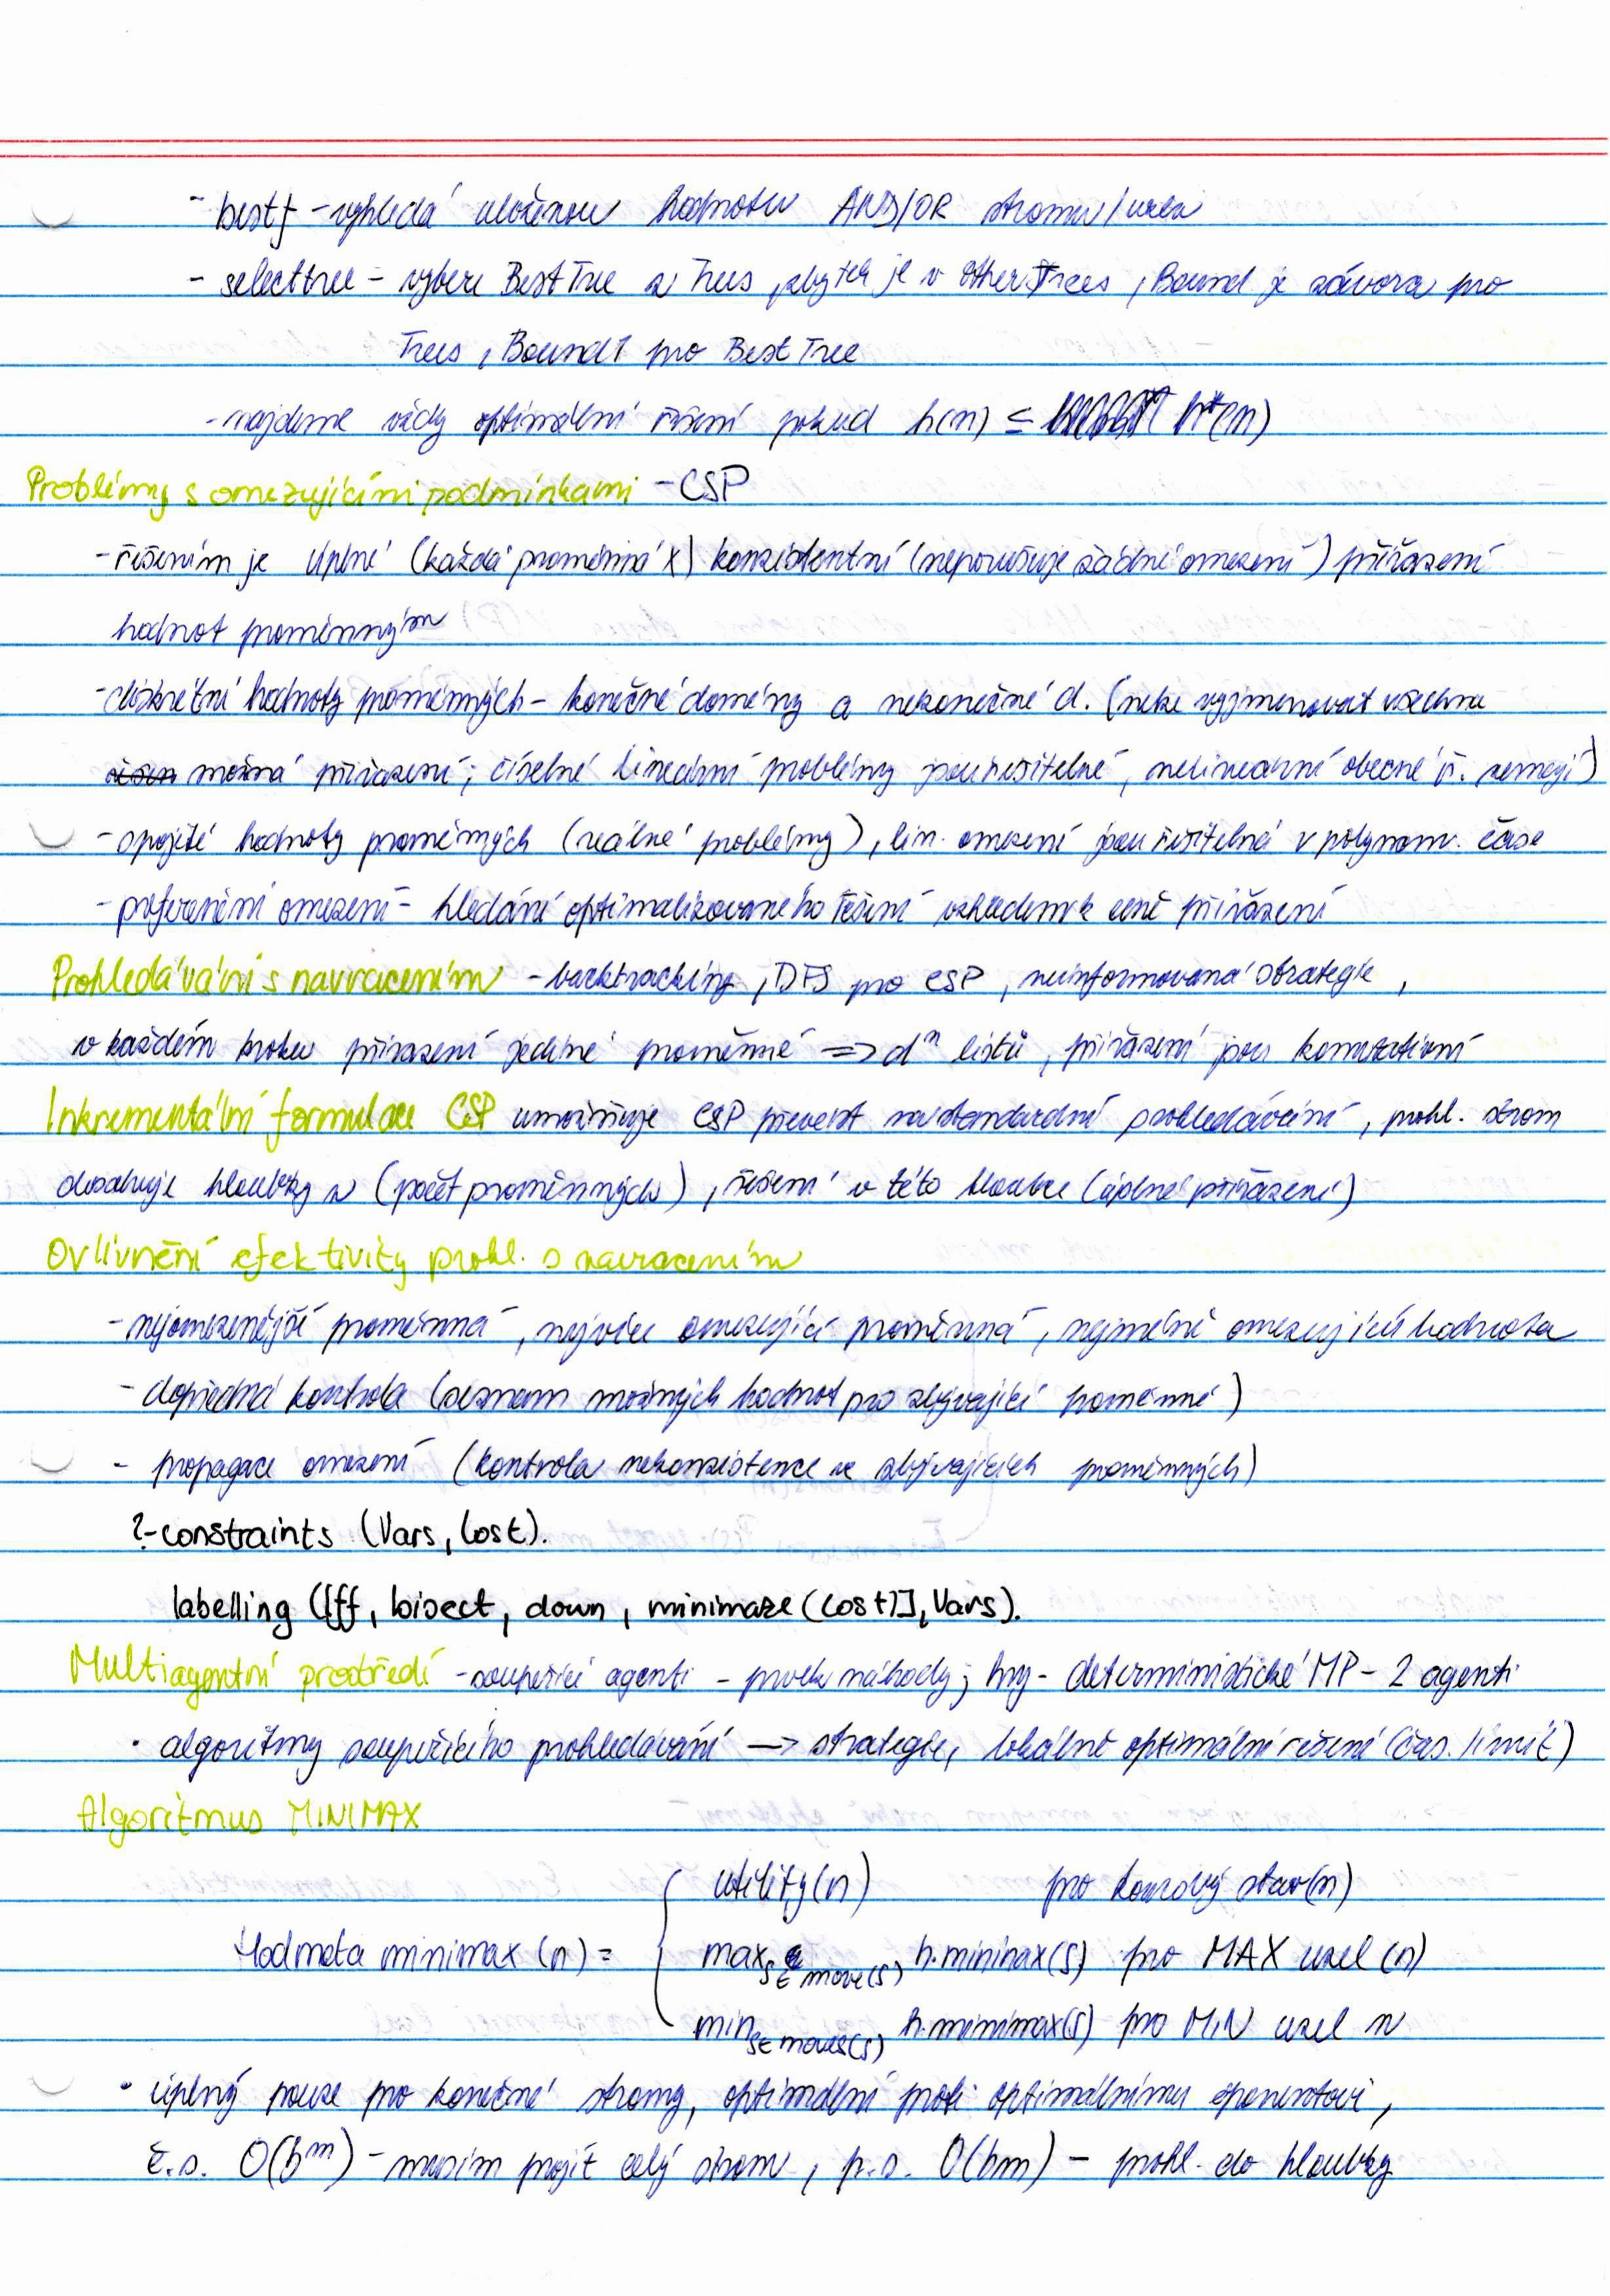 - bestf - vyhledá uloženou hodnotu AND/OR stromu/uzlu
- selecttree - vybere BestTree z Trees, zbytek je v OtherTrees, Bound je závora pro
Trees, Bound1 pro BestTree
- najdeme vždy optimální řešení pokud h(n) ≤ h*(n)
Problémy s omezujícími podmínkami - CSP
- řešením je úplné (každá proměnná x) konzistentní (neporušuje žádné omezení) přiřazení
hodnot proměnným
- diskrétní hodnoty proměnných - konečné domény a nekonečné d. (nelze vyjmenovat všechna
možná přiřazení; číselné lineární problémy jsou řešitelné, nelineární obecné ř. nemají)
- spojité hodnoty proměnných (reálné problémy), lin. omezení jsou řešitelná v polynom. čase
- preferenční omezení - hledání optimalizovaného řešení vzhledem k ceně přiřazení
Prohledávání s navracením - backtracking, DFS pro CSP, neinformovaná strategie,
v každém kroku přiřazení jediné proměnné => dⁿ listů, přiřazení jsou komutativní
Inkrementální formulace CSP umožňuje CSP převést na standardní prohledávání, prohl. strom
dosahuje hloubky n (počet proměnných), řešení v této hloubce (úplné přiřazení)
Ovlivnění efektivity prohl. s navracením
- nejomezenější proměnná, nejvíce omezující proměnná, nejméně omezující hodnota
- dopředná kontrola (seznam možných hodnot pro zbývající proměnné)
- propagace omezení (kontrola nekonzistence ve zbývajících proměnných)
?-constraints (Vars, Cost).
labelling ([ff, bisect, down, minimaze(Cost)], Vars).
Multiagentní prostředí - soupeřící agenti - prvek náhody; hry - deterministické MP - 2 agenti
• algoritmy soupeřícího prohledávání -> strategie, lokálně optimální řešení (čas. limit)
Algoritmus MINIMAX
utility(n) pro koncový stav(n)
Hodnota minimax (n) = { max s∈move(s) h.minimax(s) pro MAX uzel (n)
min s∈moves(s) h.minimax(s) pro MIN uzel n
• úplný pouze pro konečné stromy, optimální proti optimálnímu oponentovi,
č.s. O(bᵐ) - musím projít celý strom, p.s. O(bm) - prohl. do hloubky